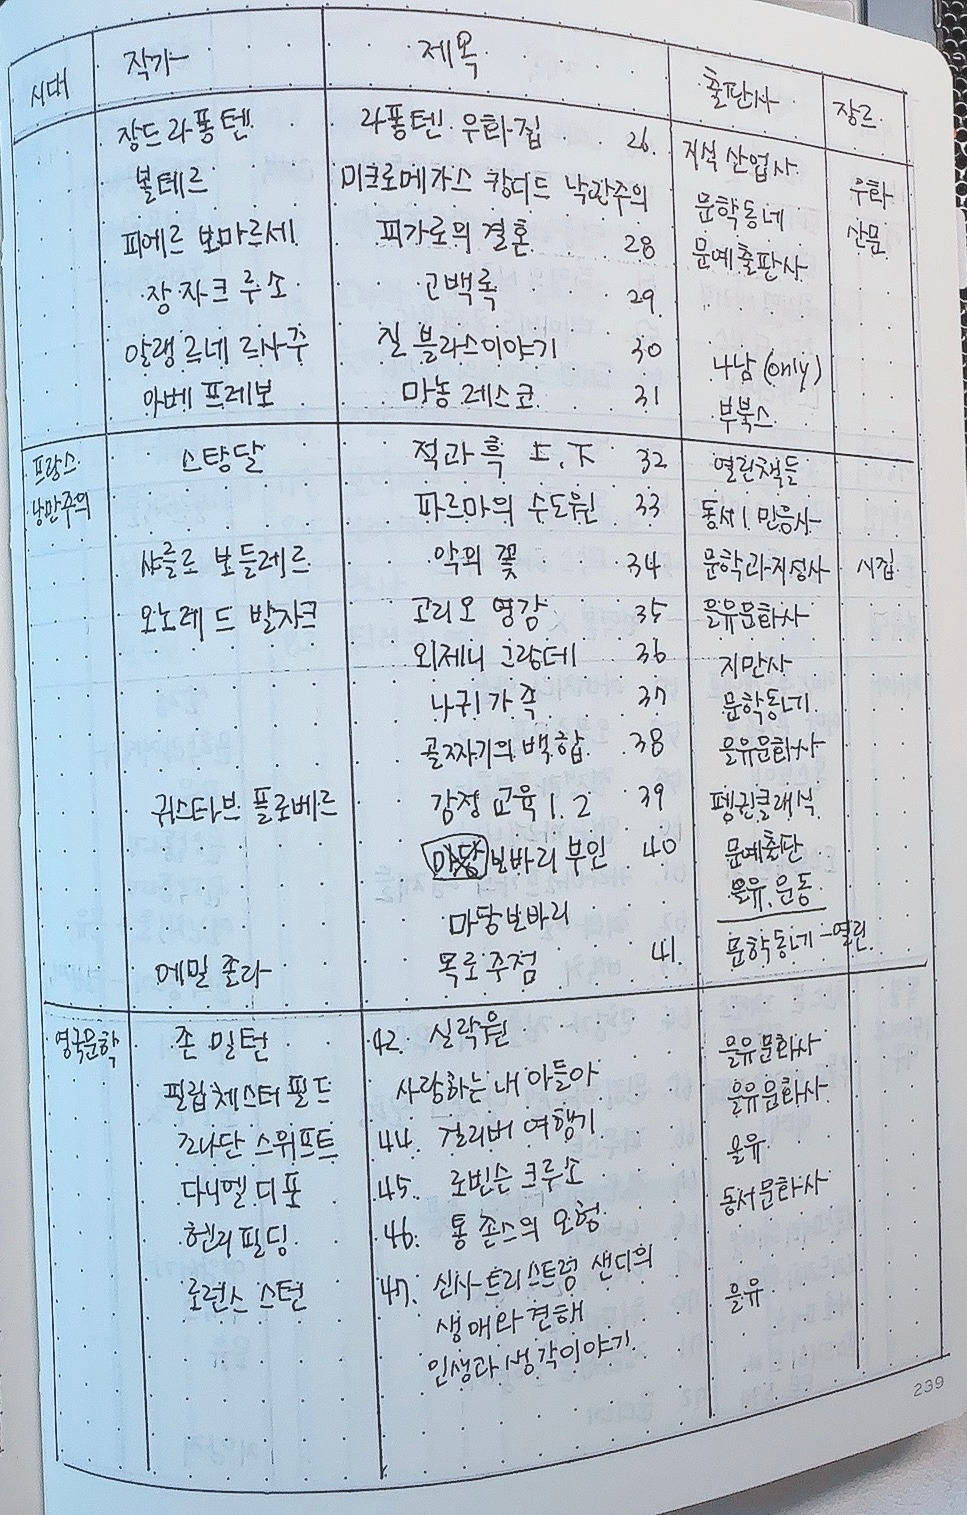 시대 작가 제목 출판사 장르
장드라퐁텐 라퐁텐 우화집 26. 지식산업사 우화
볼테르 미크로메가스 캉디드 낙관주의 문학동네 산문
피에르 보마르셰 피가로의 결혼 28 문예출판사
장 자크 루소 고백록 29.
알랭 르네 르사주 질 블라스이야기 30 나남 (only)
아베 프레보 마농 레스코 31 부북스
프랑스 스탕달 적과 흑 上, 下 32 열린책들
낭만주의 파르마의 수도원 33 동서 1, 민음사
샤를로 보들레르 악의 꽃 34 문학과지성사 시집
오노레 드 발자크 고리오 영감 35 을유문화사
외제니 그랑데 36 지만사
나귀 가죽 37 문학동네
골짜기의 백합 38 을유문화사
귀스타브 플로베르 감정 교육 1, 2 39 펭귄클래식
보바리 부인 40 문예출판
마담보바리 을유,
에밀 졸라 목로주점 41. 문학동네 - 열린
영국문학 존 밀턴 42. 실락원 을유문화사
필립체스터필드 사랑하는 내 아들아 을유문화사
조나단 스위프트 44. 걸리버 여행기 을유
다니엘 디포 45. 로빈슨 크루소 동서문화사
헨리필딩 46. 톰 존스의 모험
로런스 스턴 47. 신사 트리스트럼 샌디의 을유
생애와 견해
인생과 생각이야기
239